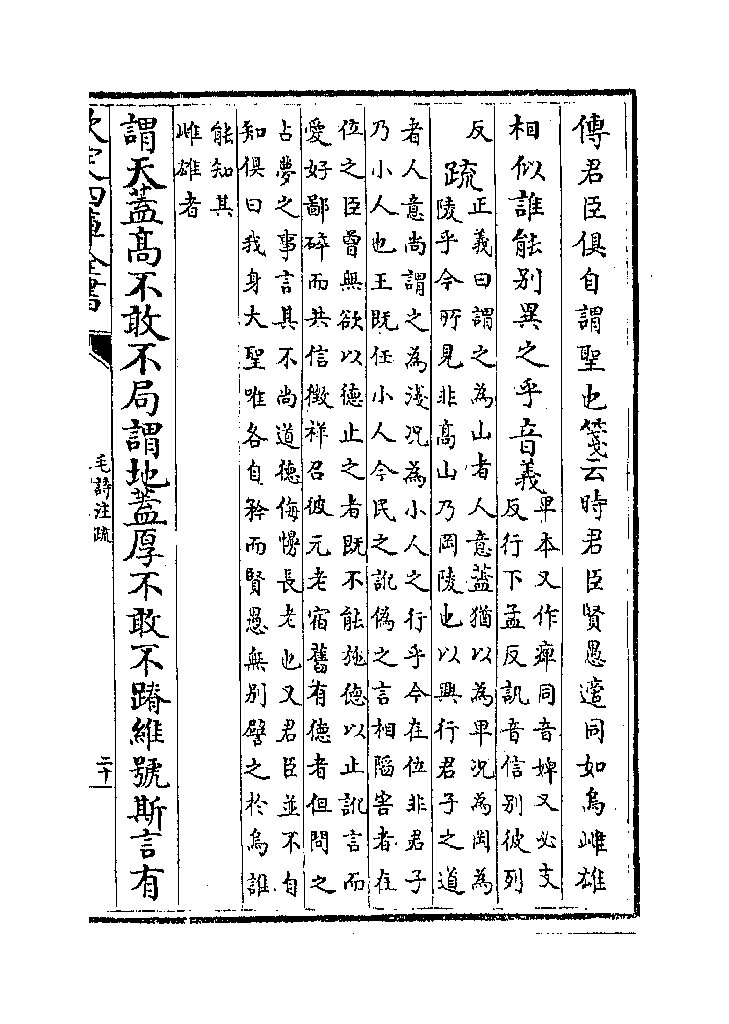 傳君臣俱自謂聖也箋云時君臣賢愚適同如烏雌雄
相似誰能別異之乎音義卑本又作痺同音婢又必支
反行下孟反訊音信別彼列
反
疏正義曰謂之為山者人意蓋猶以為卑况為岡為
陵乎今所見非髙山乃岡陵也以興行君子之道
者人意尚謂之為淺况為小人之行乎今在位非君子
乃小人也王既任小人今民之訛偽之言相陷害者在
位之臣曾無欲以德止之者既不能施德以止訛言而
愛好鄙碎而共信徴祥召彼元老宿舊有德者但問之
占夢之事言其不尚道德侮慢長老也又君臣並不自
知俱曰我身大聖唯各自矜而賢愚無別譬之於烏誰
能知其
雌雄者
謂天蓋髙不敢不局謂地蓋厚不敢不蹐維號斯言有
欽定四庫全書
毛詩注疏
二十一